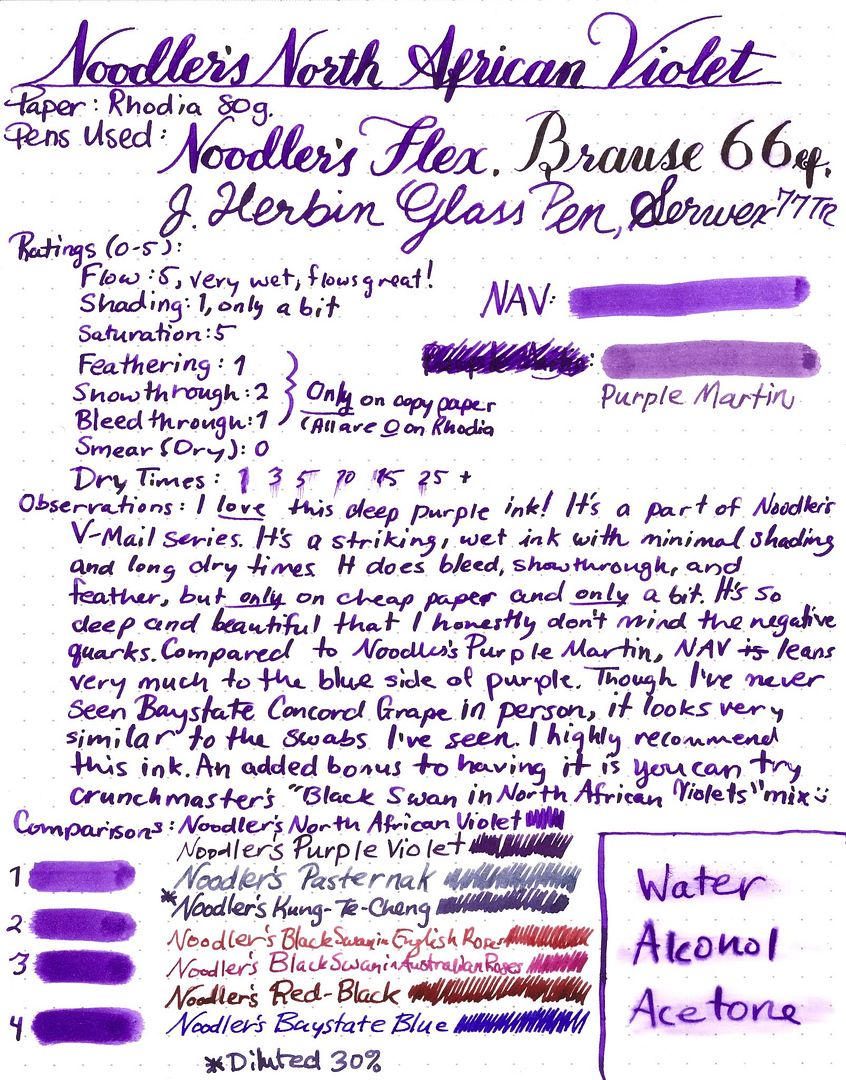 Noodler's North African Violet
Paper: Rhodia 80g.
Pens Used:
Noodler's Flex. Brause 66ef.
J. Herbin Glass Pen, Serwex 77TR
Ratings (0-5):
Flow: 5, very wet, flows great!
Shading: 1, only a bit
Saturation: 5
Feathering: 1
Showthrough: 2
Bleedthrough: 1
Only on copy paper
(All are 0 on Rhodia
Smear (Dry): 0
Dry Times: 1 3 5 10 15 25 +
NAV:
Purple Martin
Observations: I love this deep purple ink! It's a part of Noodler's
V-Mail series. It's a striking, wet ink with minimal shading
and long dry times. It does bleed, showthrough, and
feather, but only on cheap paper and only a bit. It's so
deep and beautiful that I honestly don't mind the negative
quarks. Compared to Noodler's Purple Martin, NAV is leans
very much to the blue side of purple. Though I've never
seen Baystate Concord Grape in person, it looks very
similar to the swabs I've seen. I highly recommend
this ink. An added bonus to having it is you can try
crunchmaster's "Black Swan in North African Violets" mix :)
Comparisons: Noodler's North African Violet
Noodler's Purple Violet
Noodler's Pasternak
*Noodler's Kung-Te-Cheng
Noodler's Black Swan in English Roses
Noodler's Black Swan in Australian Roses
Noodler's Red-Black
Noodler's Baystate Blue
*Diluted 30%
1
2
3
4
Water
Alcohol
Acetone